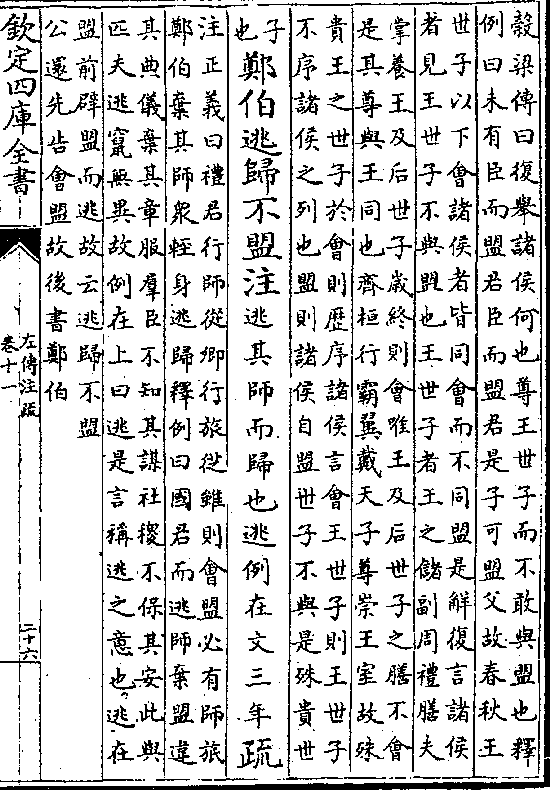 穀梁傳曰復舉諸侯何也尊王世子而不敢與盟也釋
例曰未有臣而盟君臣而盟君是子可盟父故春秋王
世子以下會諸侯者皆同會而不同盟是解復言諸侯
者見王世子不與盟也王世子者王之儲副周禮膳夫
掌養王及后世子歲終則會唯王及后世子之膳不會
是其尊與王同也齊桓行霸翼戴天子尊崇王室故殊
貴王之世子於會則歴序諸侯言會王世子則王世子
不序諸侯之列也盟則諸侯自盟世子不與是殊貴世
子
也
鄭伯逃歸不盟注
逃其師而歸也逃例在文三年
疏
注正義曰禮君行師從卿行旅從雖則會盟必有師旅
鄭伯棄其師衆輕身逃歸釋例曰國君而逃師棄盟違
其典儀棄其章服羣臣不知其謀社稷不保其安此與
匹夫逃竄無異故例在上曰逃是言稱逃之意也逃在
盟前辟盟而逃故云逃歸不盟
公還先告會盟故後書鄭伯
欽定四庫全書
左傳注疏
卷十一
二十六